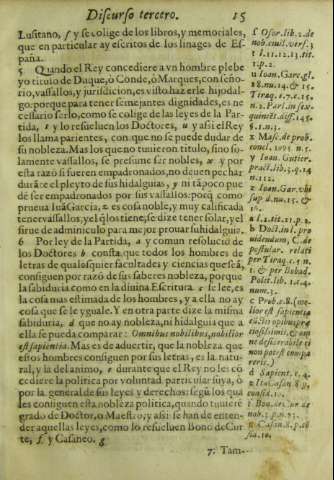 Discurso tercero. 15
Lusitano, f y se colige de los libros, y memoriales,
que en particular ay escritos de los linages de Es-
paña.
5 Quando el Rey concediere a vn hombre plebe
yo titulo de Duque, ò Conde, ò Marques, con seño-
rio, vassallos, y jurisdicion, es visto hazerle hijodal-
go: porque para tener semejantes dignidades, es ne
cessario serlo, como se colige de las leyes de la Par-
tida, t y lo resueluen los Doctores, u y assi el Rey
los llama parientes, con que no se puede dudar de
su nobleza. Mas los que no tuuieron titulo, sino so-
lamente vassallos, se presume ser nobles, x y por
esta razõ si fueren empadronados, no deuen pechar
durãte el pleyto de sus hidalguias, y ni tãpoco pue
dẽ ser empadronados por sus vassallos: porq̃ como
prueua Iuã Garcia, z es cosa noble, y muy calificada
tener vassallos, y el q̃ los tiene, se dize tener solar, y el
sirue de adminiculo para mejor prouar su hidalguia.
6 Por ley de la Partida, a y comun resoluciõ de
los Doctores b consta, que todos los hombres de
letras de qualesquier facultades y ciencias que seã,
consiguen por razõ de sus saberes nobleza, porque
la sabiduria como en la diuina Escritura c se lee, es
la cosa mas estimada de los hombres, y a ella no ay
cosa que se le yguale. Y en otra parte dize la misma
sabiduria, d que no ay nobleza, ni hidalguia que a
ella se pueda comparar: Omnibus nobilibus, nobilior
est sapientia. Mas es de aduertir, que la nobleza que
estos hombres consiguen por sus letras, es la natu-
ral, y la del animo, e durante que el Rey no les cõ
cediere la politica por voluntad particular suya, ò
por la general de sus leyes y derechos: segũ los qua
les consiguen esta nobleza politica, quando tuuierẽ
grado de Doctor, o Maestro, y assi se han de enten-
der aquellas leyes, como lo resueluen Bono de Cur
te, f y Casaneo. g
7. Tam-
f Osor. lib. 2. de
nob. ciuil. vers. 3
t l. 11. 12. 13. tit.
1. p. 2.
u Ioan. Gar. gl.
18. nu. 14. & 15.
x Masc. de prob.
y Ioan. Gutier.
pract. lib. 3. q. 14
n. 112.
z Ioan. Gar. vbi
sup.
a l. 2. tit. 21. p. 2.
b Doct. in l. pro
uidendum, C. de
postular. relati
per Tiraq. c. 5. n.
1. & per Bobad.
Polit. lib. 1. c. 4.
num. 3.
c Prob. c. 8. (me-
lior est sapientia
cũctis opibus pre
tiosissimis, & om
ne desiderabile ei
non potest compa
rari.)
d Sapient. c. 4.